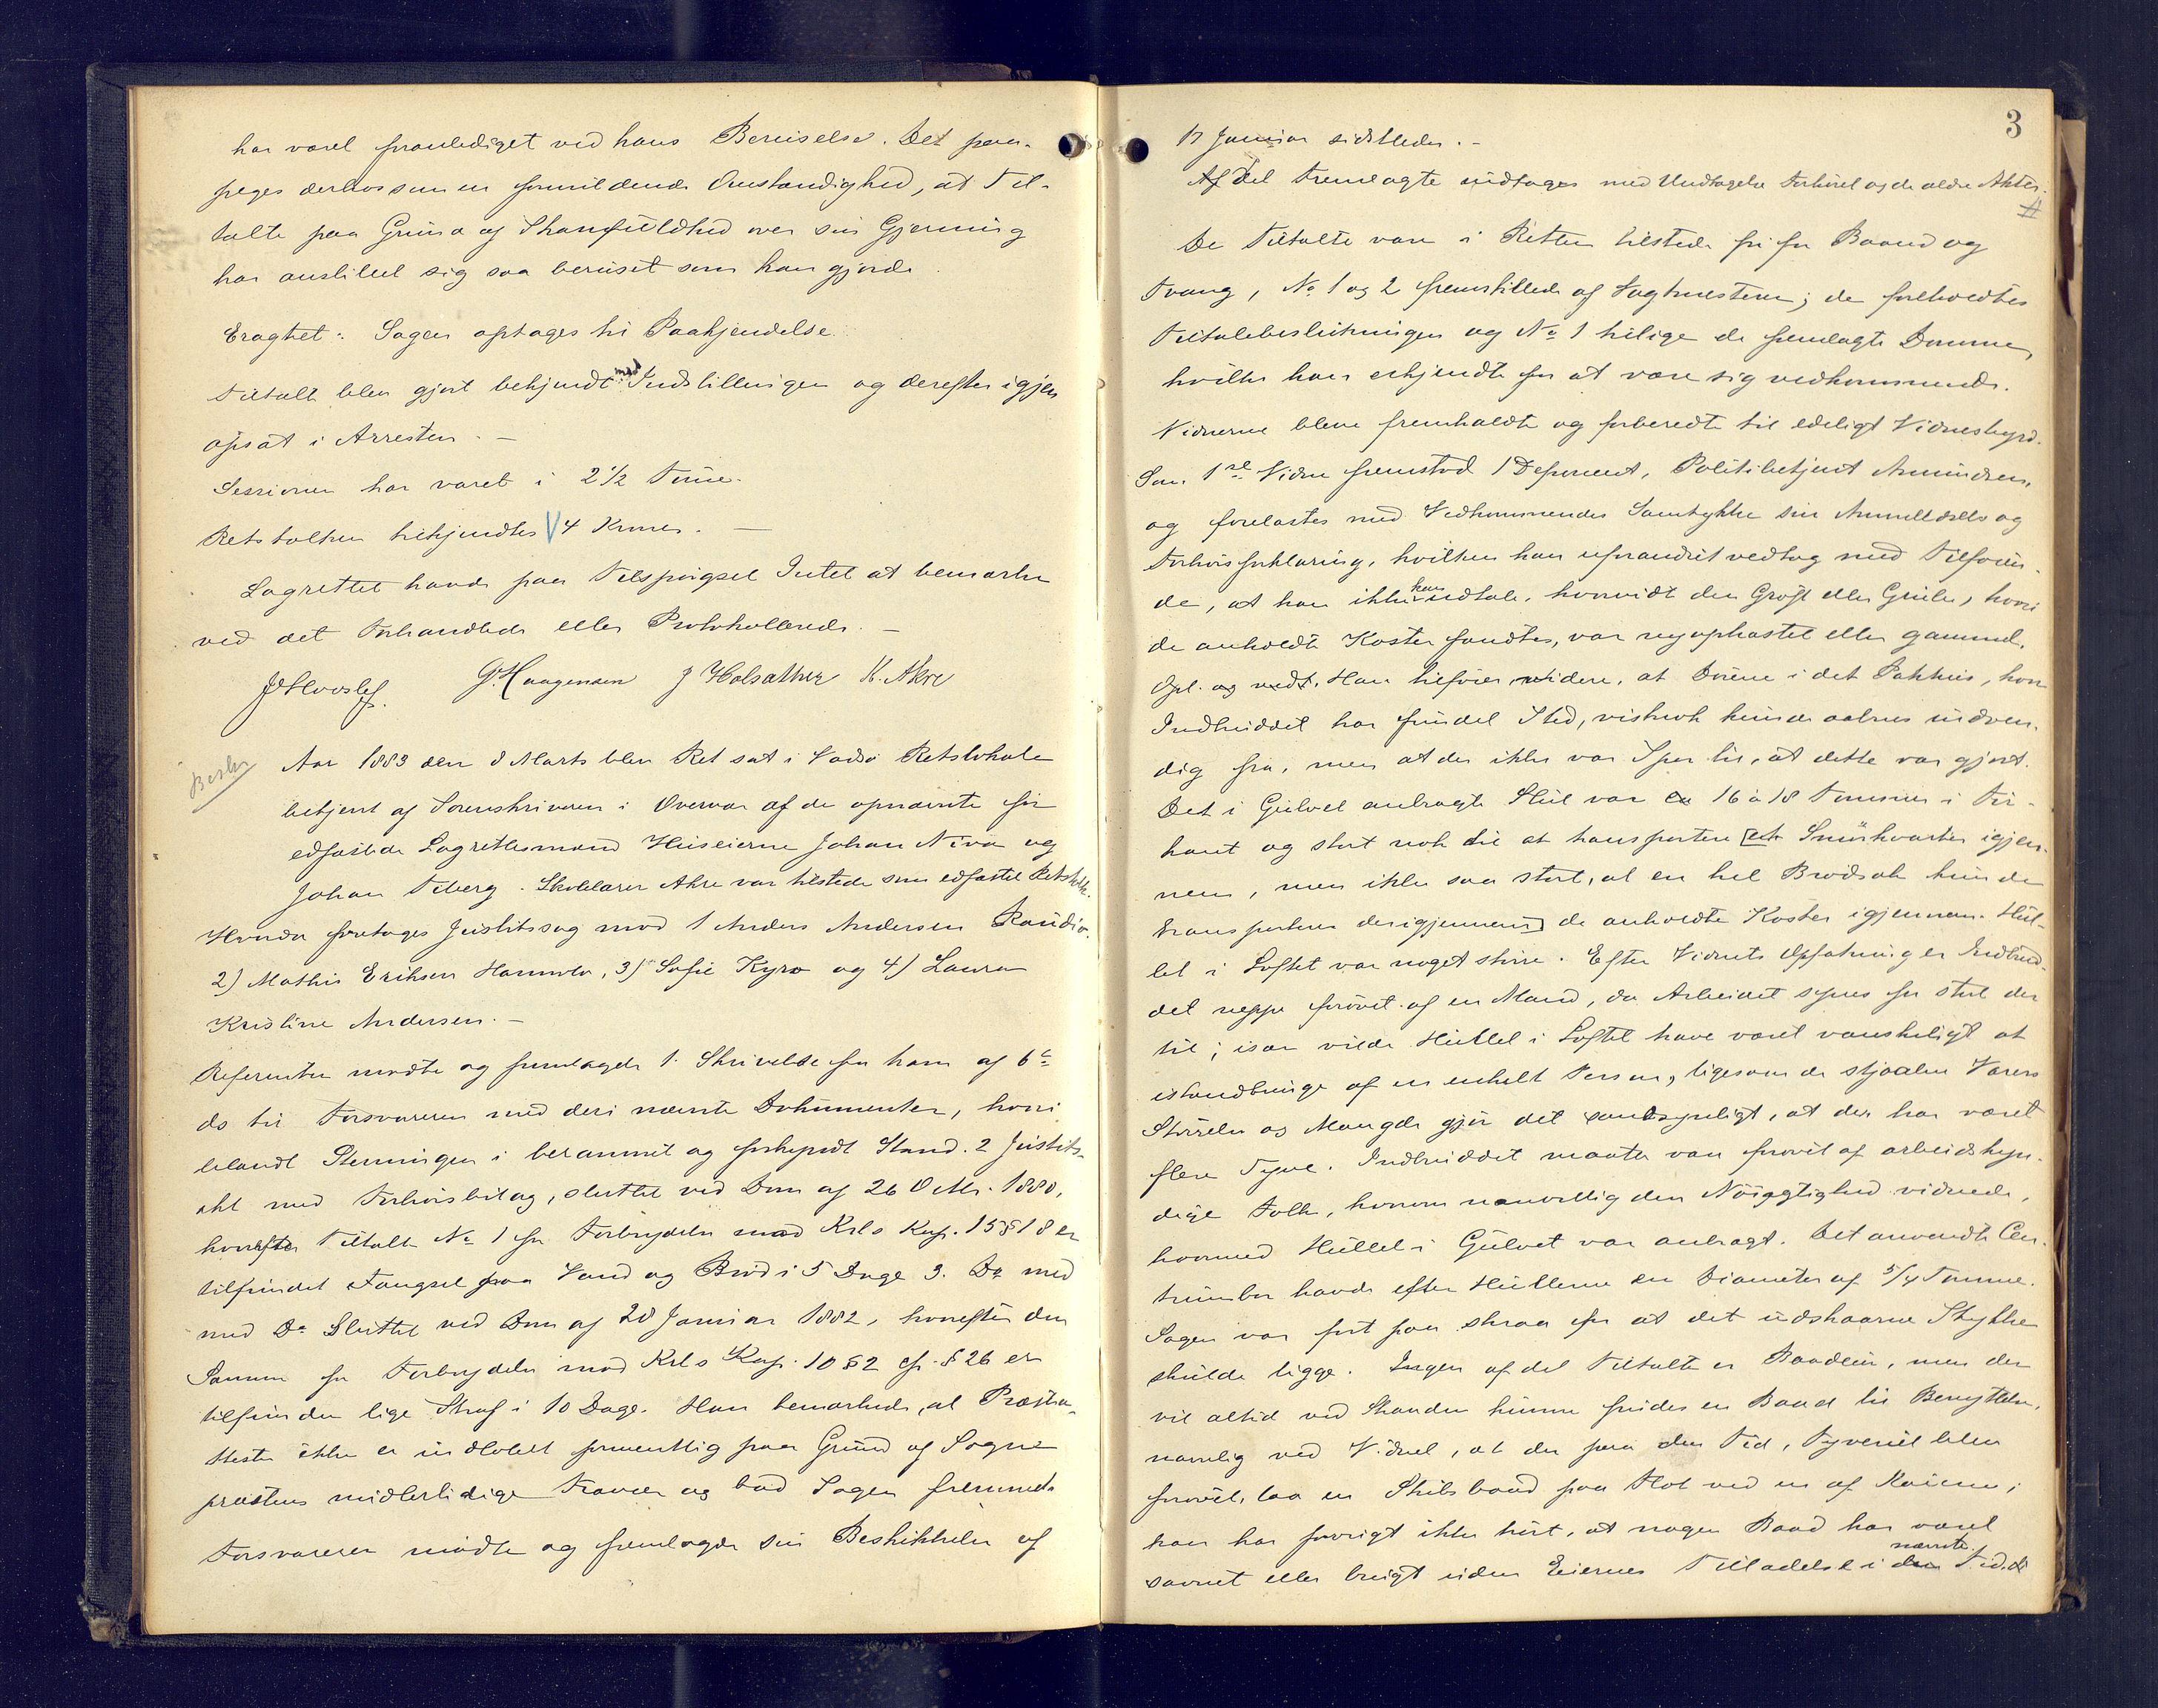 har været foranlediget ved hans Beruselse. Det paa-
peges derhos som en formildende Omstændighed, at Til-
talte paa Grund af Skamfuldhed over sin Gjerning
har anstillet sig saa beruset som han gjorde.
Eragtet: Sagen optages til Paakjendelse.
Tiltalte blev gjort bekjendt med Indstillingen og derefter igjen
opsat i Arresten. —
Sessionen har varet i 2 1/2 Time.
Retstolken tilkjendtes 4 Kroner. —
Lagrettet havde paa Tilspørgsel Intet at bemærke
ved det Forhandlede eller Protokollerede. —
G. Haagensen J Holsæther K. Akre
Beskr
Aar 1883 den 8 Marts blev Ret sat i Vadsø Retslokale
betjent af Sorenskriveren i Overvær af de opnævnte før
edfæstede Lagrettesmænd Huseierne Johan Niva og
Johan Fiberg. Skolelærer Akre var tilstede som edfæstet Retstolk.
Hvorda foretoges Justitssag mod 1 Anders Andersen Raudio.
2) Mathis Eriksen Hannola, 3) Sofie Kyrø og 4) Laura
Kristine Andersen. —
Referenten mødte og fremlagde 1. Skrivelse fra ham af 6te
ds til Forsvareren med deri nævnte Dokumenter, hvori
blandt Stevningen i berammet og forkyndt Stand. 2 Justits-
akt med Forhørsbilag, sluttet ved Dom af 26 Oktbr. 1880,
hvorefter Tiltalte No 1 for Forbrydelse mod Krls Kap. 15 § 18 er
tilfundet Fængsel paa Vand og Brød i 5 Dage 3. Do med
med Do Sluttet ved Dom af 28 Januar 1882, hvorefter den
Samme for Forbrydelse mod Krls Kap. 10 § 2 cfr. § 26 er
tilfunden lige Straf i 10 Dage. Han bemærkede, at Præstea-
ttester ikke er indløbet formentlig paa Grund af Sogne
præstens midlertidige Fravær og bad Sagen fremmet.
Forsvareren mødte og fremlagde sin Beskikkelse af
3
17 Januar sidstleden. —
Af det Fremlagte indtages med Undtagelse Forhøret og de ældre Akter. #
De Tiltalte vare i Retten tilstede fri for Baand og
Tvang, No 1 og 2 fremstillede af Vagtmesteren; de foreholdtes
Tiltalebeslutningen og No 1 tillige de fremlagte Domme,
hvilke han erkjendte for at være sig vedkommende.
Vidnerne bleve fremkaldte og forberedte til edeligt Vidnesbyrd.
Som 1ste Vidne fremstod 1 Deponent, Politibetjent Amundsen,
og forelæstes med Vedkommendes Samtykke sin Anmeldelse og
Forhørsforklaring, hvilken han uforandret vedtog med Tilføien-
de, at han ikke kan udtale, hvorvidt den Grøft eller Grube, hvori
de anholdte Koster fandtes, var nyopkastet eller gammel.
Opl. og vedt. Han tilføier videre, at Døren i det Pakhus, hvor
Indbruddet har fundet Sted, vistnok kunde aabnes indven-
dig fra, men at der ikke var Spor til, at dette var gjort.
Det i Gulvet anbragte Hul var ca 16 à 18 Tommer i Fir-
kant og stort nok til at transportere [et Smørkvarter igjen-
nem, men ikke saa stort, at en hel Brødsæk kunde
transporteres derigjennem] de anholdte Koster igjennem. Hul-
let i Loftet var noget større. Efter Vidnets Opfatning er Indbrud-
det neppe forøvet af en Mand, da Arbeidet synes for stort der
til; især vilde Hullet i Loftet have været vanskeligt at
istandbringe af en enkelt Person, ligesom de stjaalne Varers
Størrelse og Mængde gjør det sandsynligt, at der har været
flere Tyve. Indbruddet maatte være forøvet af arbeidskyn-
dige Folk, hvorom navnlig den Nøiagtighed vidnede,
hvormed Hullet i Gulvet var anbragt. Det anvendte Cen-
trumbor havde efter Hullerne en Diameter af 5/4 Tomme.
Sagen var ført paa skraa for at det udskaarne Stykke
skulde ligge. Ingen af det Tiltalte er Baadeier, men der
vil altid ved Stranden kunne findes en Baad til Benyttelse,
navnlig ved Vidnet, at der paa den Tid, Tyveriet blev
forøvet, laa en Skibsbaad paa Flot ved en af Kaierne;
han har forøvrigt ikke hørt, at nogen Baad har været
savnet eller brugt uden Eiernes Tilladelse i den nævnte Tid.